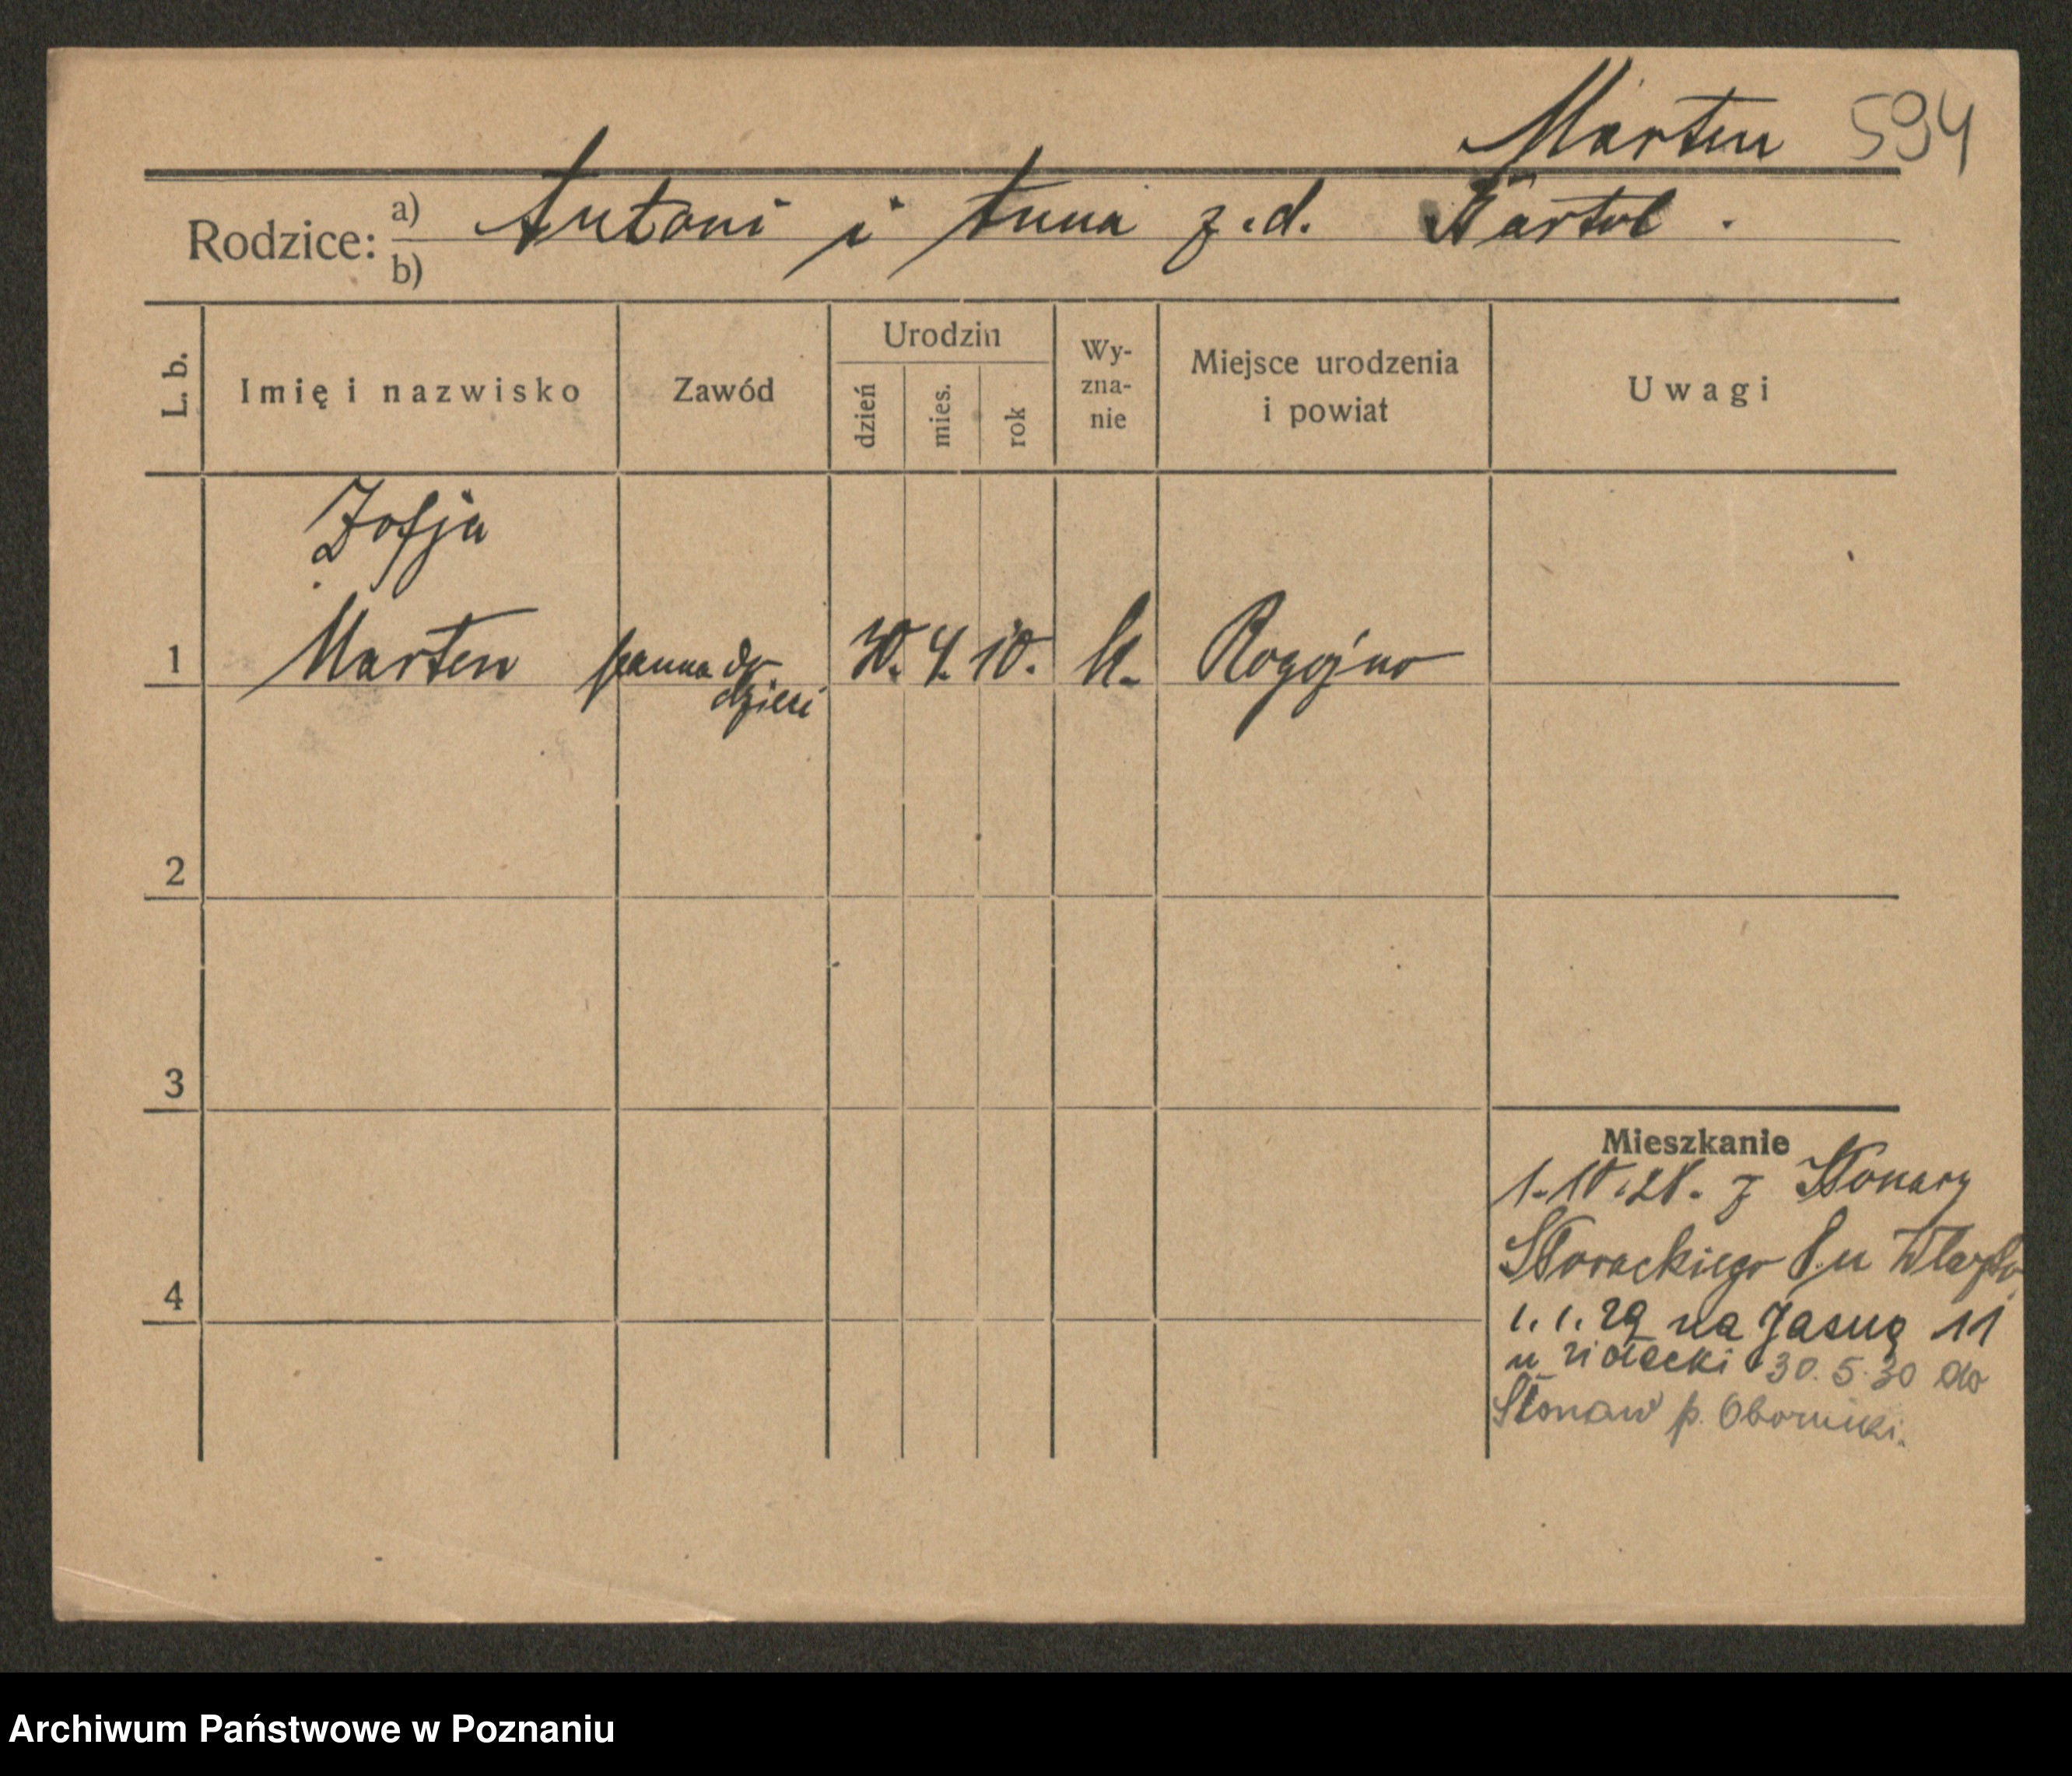 Marten 594
Rodzice: a) Antoni i Anna z.d. Bartol.
b)
L. b.
Imię i nazwisko
Zawód
Urodzin
dzień
mies.
rok
Wy-
zna-
nie
Miejsce urodzenia
i powiat
Uwagi
Zofja
1 Marten panna do 30. 4. 10. k. Rogoźno
dzieci
2
3
Mieszkanie
1.10.28. z Słonawy
Słowackiego u
4
1.1.29 na Jasną 11
u 30.5.30 do
Słonaw p. Oborniki.
Archiwum Państwowe w Poznaniu